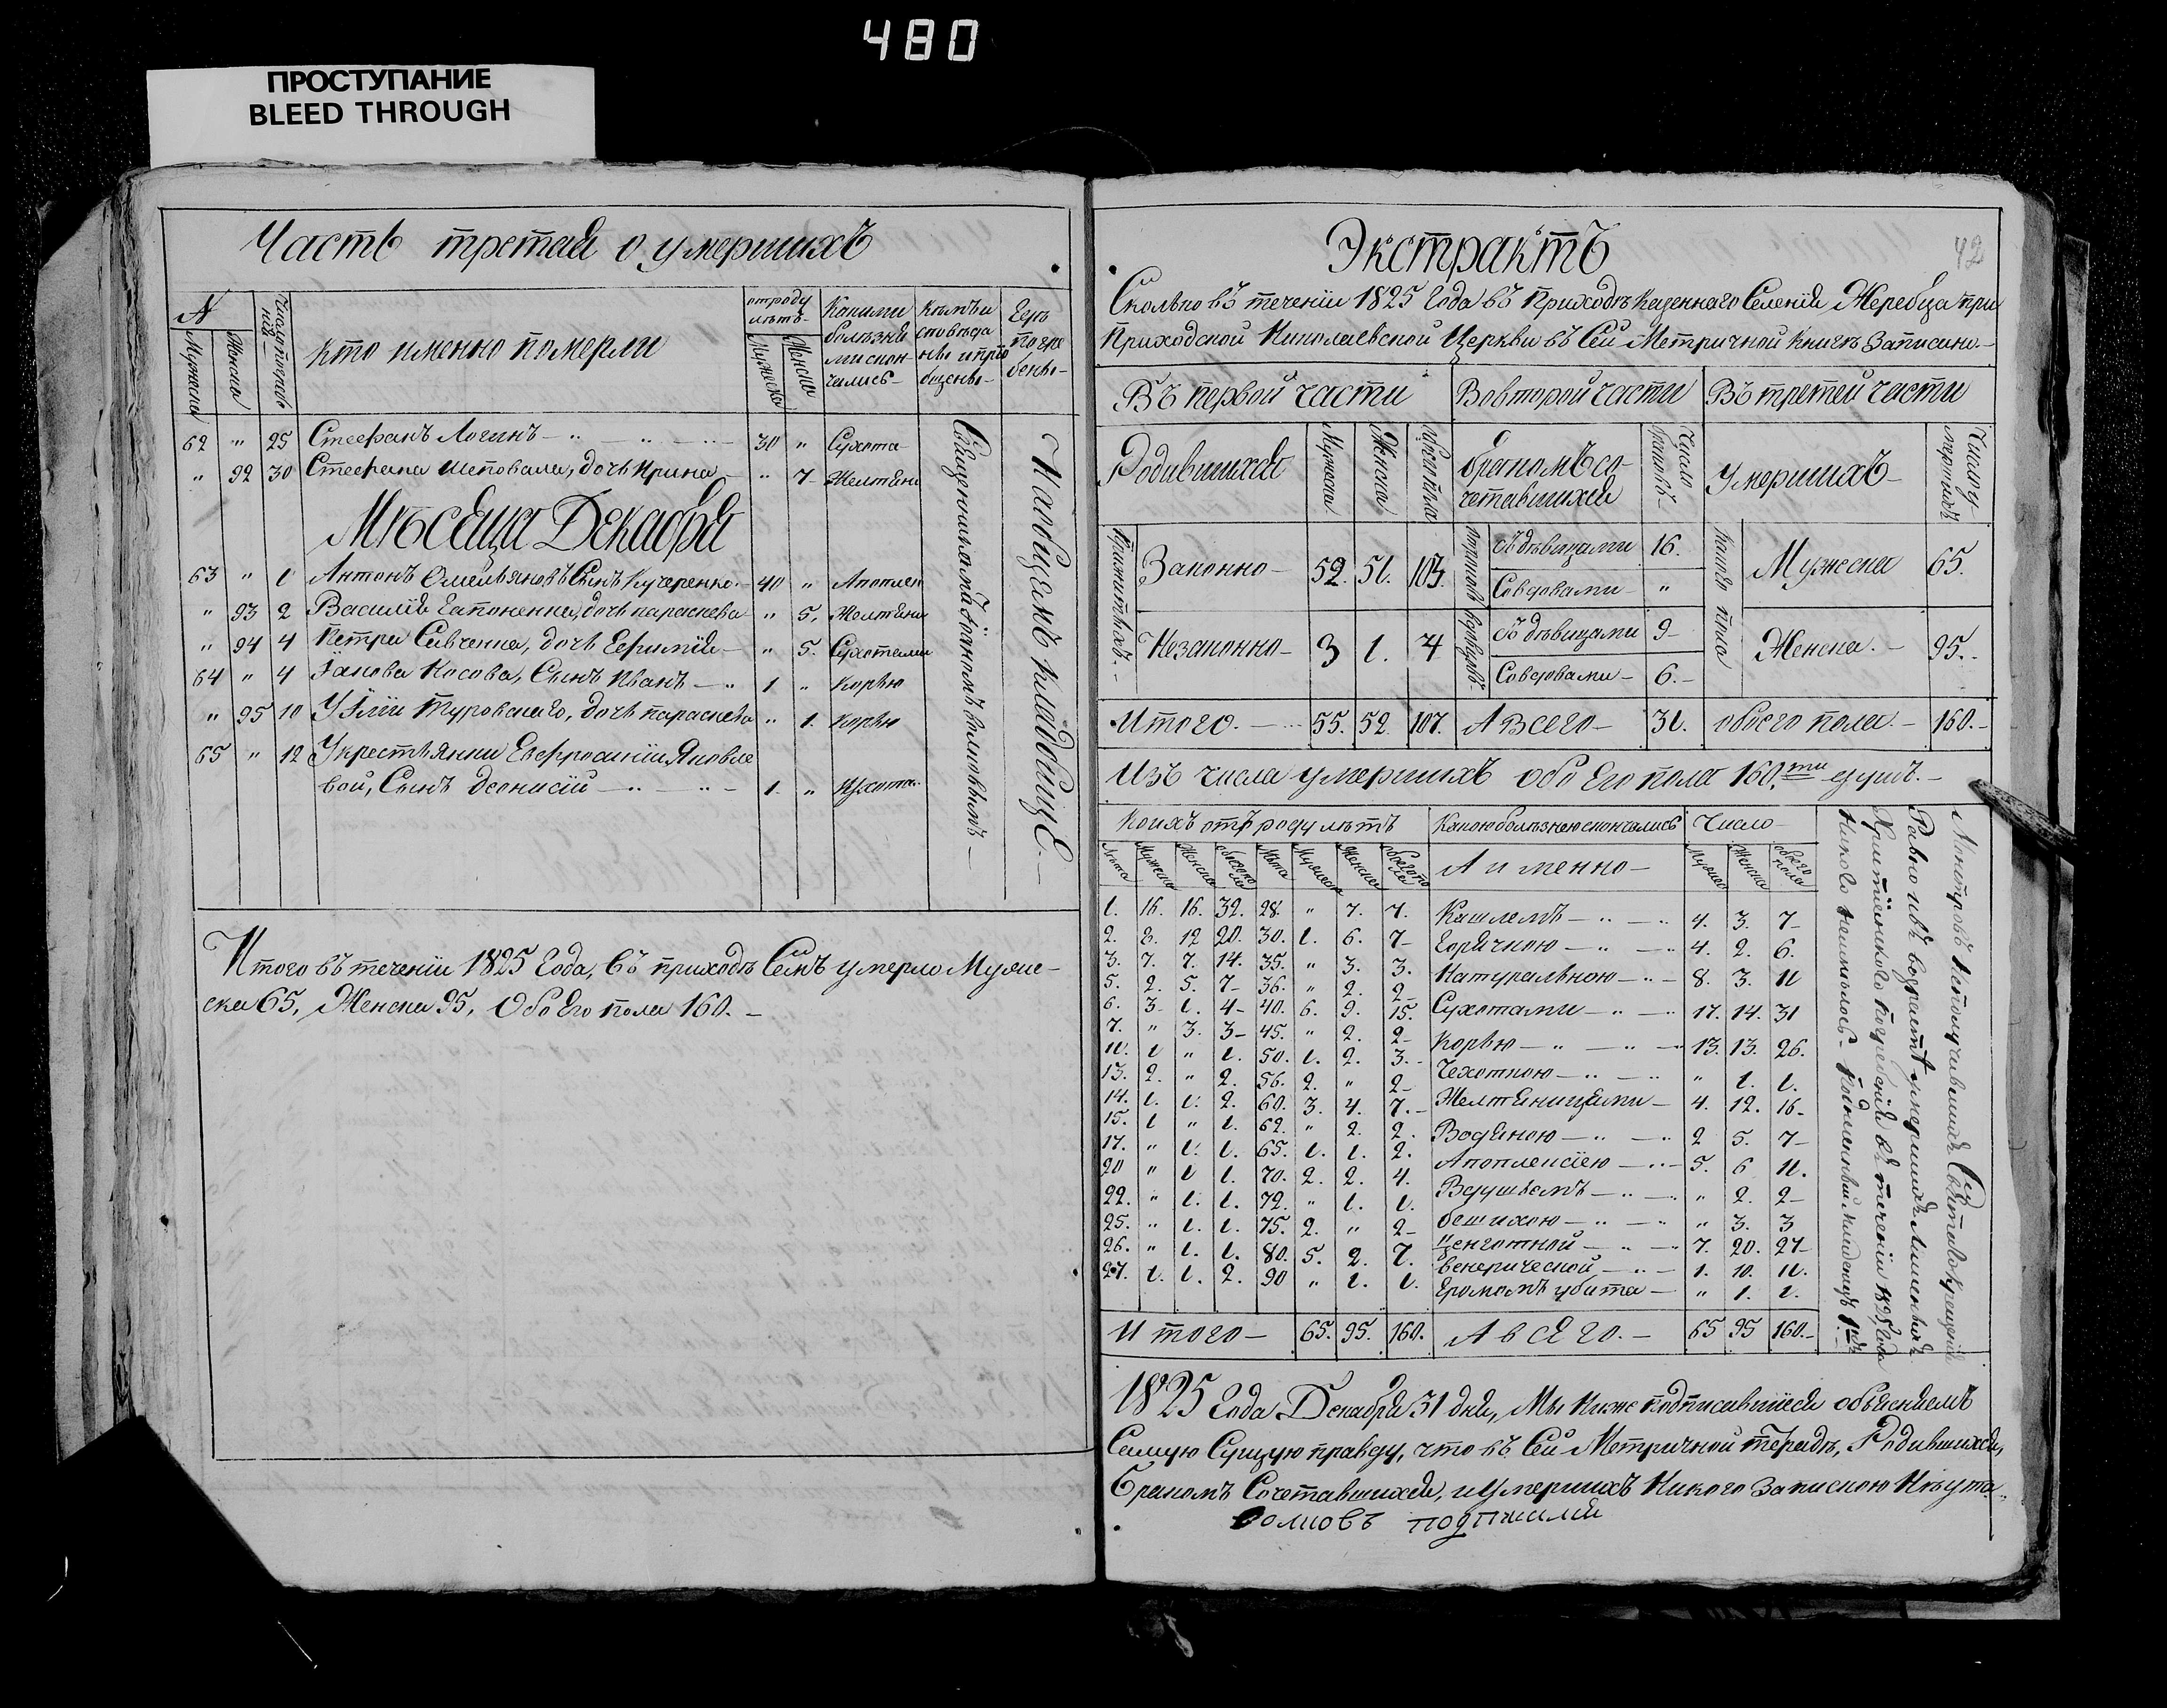 480
ПРОСТУПАНИЕ
BLEED THROUGH
Часть третая о умершихъ
№
Мужеска
Женска
кто именно померли
отроду лѣтъ
Мужеска
Женска
Какими болѣзнями скончались
кѣмъ исповѣданы и пріобщены
Где погребены
62 " 25 Стефанъ Логинъ 30 " Сухота
" 92 30 Стефана Шеповала, дочь Ирина " 7 Желтяни
Мѣсяца Декабря
63 " 1 Антонъ Омельяновъ Сынъ Кучеренко 40 " Апоплек
" 93 2 Василія Гапоненка, дочь параскева " 5. Желтяни
" 94 4 Петра Савченка, дочь Евфимія " 5. Сухотами
64 " 4 Іакова Косова, Сынъ Иванъ 1 " Корью
" 95 10 У Иліи Туровскаго, дочь параскева " 1. Корью
65 " 12 У крестьянки Евфросиніи Яковле
вой, Сынъ Деонисій 1. " Сухота
Священникомъ Іоанномъ Волковымъ
На общемъ кладбище
Итого въ теченіи 1825 Года, въ приходѣ Семъ умерло Муже-
ска 65, Женска 95, Обоего пола 160.
42
Экстрактъ
Сколько въ теченіи 1825 Года въ Приходѣ Казеннаго Селенія Жеребца при
Приходской Николаевской Церкви въ Сей Метричной Книгѣ Записано.
Въ первой части Во второй части Въ третей части
Родившихся Мужеска Женска Обоего пола бракомъ со-
четавшихся Число браковъ Умершихъ Число умершихъ
Законно 52. 51. 103. Съ девицами 16. Мужеска 65.
Со вдовами "
Незаконно 3 1. 4 Съ девицами 9 Женска. 95.
Со вдовами 6.
Итого. 55. 52 107. А всего 31. обоего пола. 160.
Изъ числа умершихъ обоего пола 160.ти душъ.
Коихъ отъ роду лѣтъ Какою болѣзнею скончались Число
Лѣта Мужеска Женска обоего пола Лѣта Мужеска Женска обоего пола А именно Мужеска Женска обоего пола
1. 16. 16. 32. 28. " 7. 7. Кашлемъ 4. 3. 7
2. 8. 12 20. 30. 1. 6. 7 Горячкою 4. 2. 6.
3. 7. 7. 14. 35. " 3. 3. Натуральною 8. 3. 11
5. 2. 5. 7 36. " 2. 2 Сухотами 17. 14. 31
6. 3 1. 4 40. 6. 9. 15. Корью 13. 13. 26.
7. " 3. 3 45. " 2. 2 Чехоткою " 1. 1.
11. 1 " 1. 50. 1. 2. 3. Желтяницами 4. 12. 16
13. 2. " 2. 56. 2. " 2 Водяною 2 5. 7
14. 1. 1. 2. 60. 3. 4. 7. Апоплексіею 5. 6 11.
15. 1 " 1. 62. " 2. 2. Вдушьемъ " 2. 2
17. " 1. 1. 65. 1. 1. 2. бешихою " 3. 3
20 " 1 1. 70. 2. 2. 4. Ценготной 7. 20. 27
22. " 1. 1. 72. " 1. 1. венерической 1. 10. 11.
25. " 1. 1. 75. 2. " 2 Громомъ убита " 1. 1.
26. " 1. 1. 80. 5. 2. 7.
27. 1. 1. 2. 90 " 1. 1.
Итого 65. 95. 160. А всего. 65 95 160.
А некропъ неполучившихъ Святаго крещенія
Равно и въ возрастѣ умершихъ лишенныхъ
Христіанскаго погребенія въ теченіи 1825 Года
Никого неимѣлось
1825 Года Декабря 31 дня, Мы ниже подписавшіеся объясняемъ
Самую Сущую правду, что въ Сей Метричной тетрадѣ, Родившихся,
Бракомъ Сочетавшихся, и Умершихъ Никого запискою Неута
Волковъ